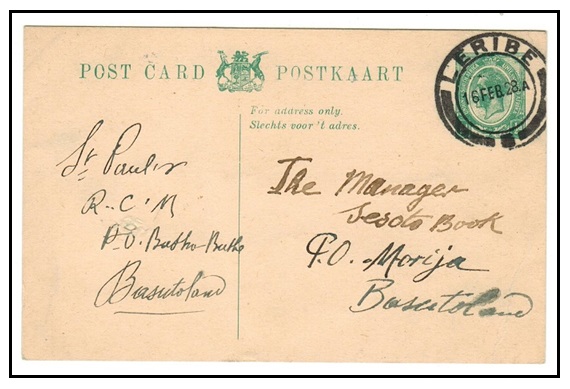 POST CARD POSTKAART
For address only.
Slechts voor 't adres.
LERIBE
16 FEB 28.A
St Paul's
R-C-M
P.O. Butha-Buthe
Basutoland
The Manager
Sesoto Book
P.O. Morija
Basutoland